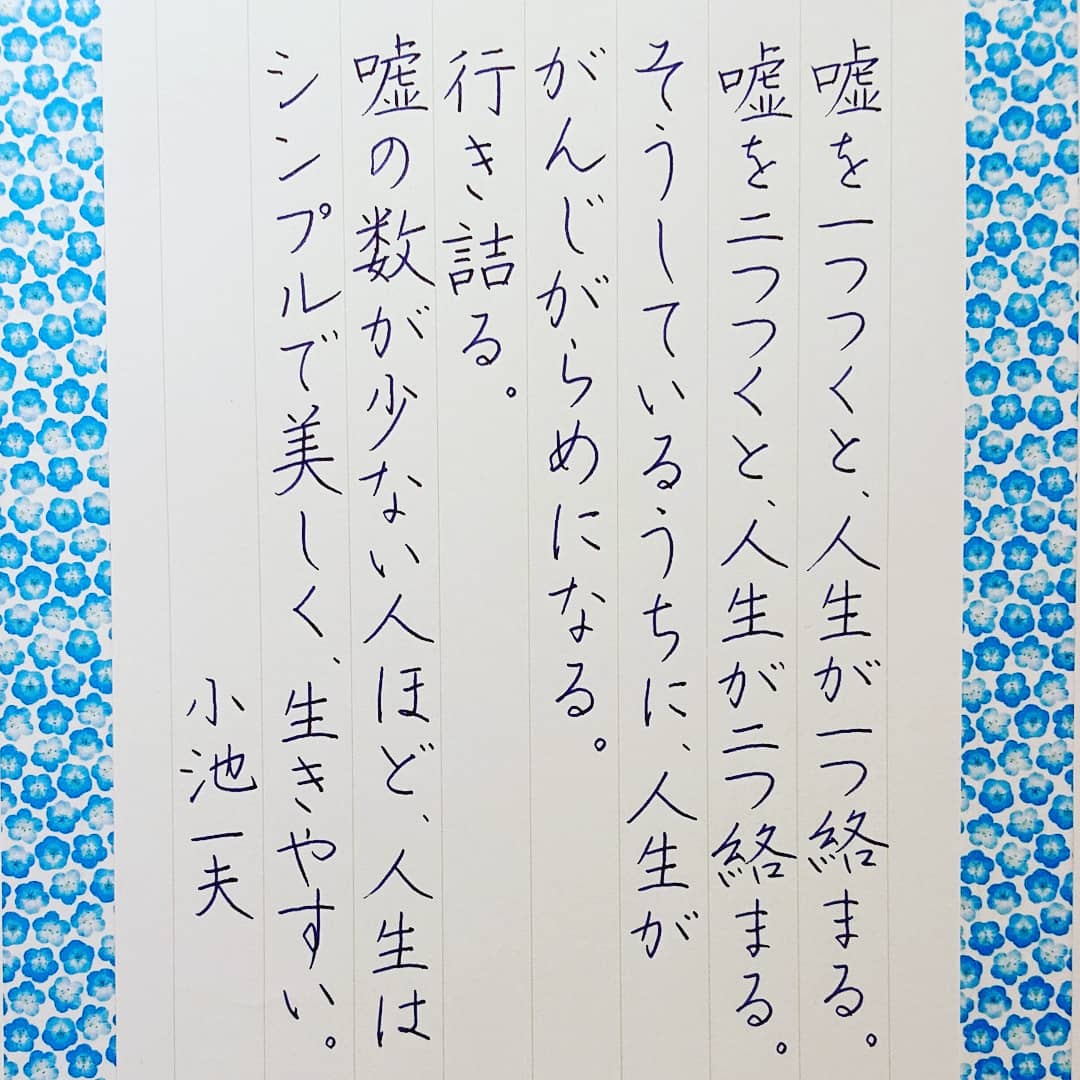 嘘を一つつくと、人生が一つ絡まる。
嘘を二つつくと、人生が二つ絡まる。
そうしているうちに、人生が
がんじがらめになる。
行き詰る。
嘘の数が少ない人ほど、人生は
シンプルで美しく、生きやすい。
小池一夫